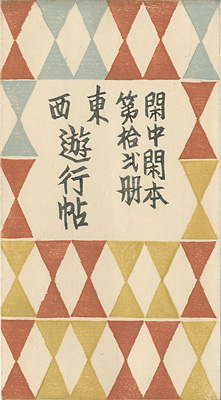 閑中閑本
第拾弐册
東西遊行帖